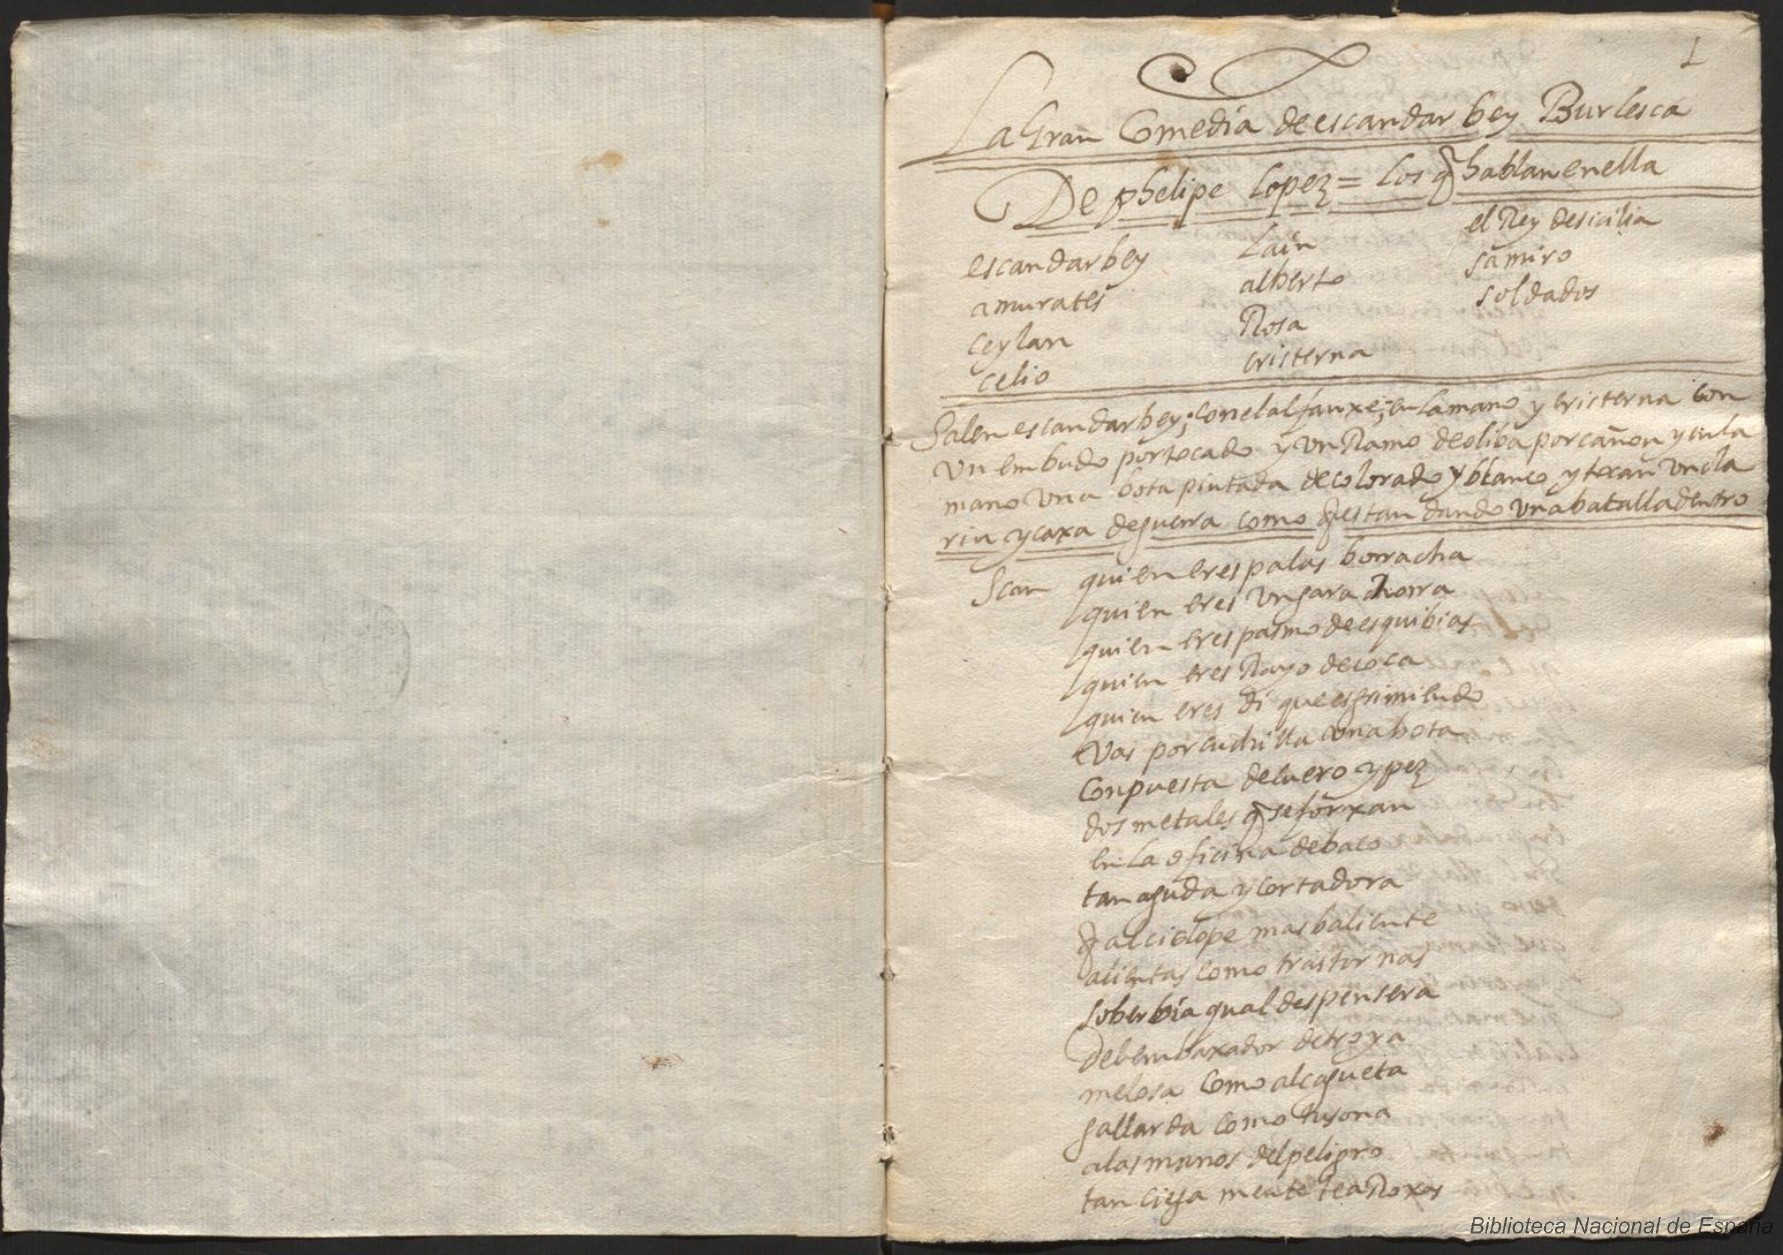 1
La Gran Comedia de escandar bey Burlesca
De phelipe lopez = los q hablan en ella
escandar bey
amurates
ceylan
celio
Laín
alberto
Rosa
cristerna
el Rey de sicilia
samiro
soldados
Salen escandarbey; con el alfanxe; en la mano y cristerna con
un embudo por tocado y un Ramo de oliba por cañon y en la
mano una bota pintada de colorado y blanco y tocan un cla
rin y caxa de guerra como q estan dando una batalla dentro
Scan quien eres palas borracha
quien eres ungara
quien eres pasmo de esquibias
quien eres Rayo de coca
quien eres di que esgrimiendo
vas por cuchilla una bota
conpuesta de cuero y pez
dos metales q se forxan
en la oficina de baco
tan aguda y cortadora
q al ciclope mas baliente
como trastornas
soberbia qual despensera
del embaxador de troya
melosa como alcagueta
gallarda como tusona
a las manos del peligro
tan ciega mente te aRoxas
Biblioteca Nacional de España